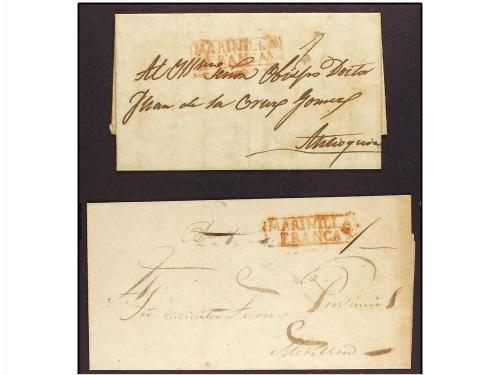 MARINILLA
FRANCA
Al Señor Obispo Doctor
Juan de la Cruz Gomez
Antioquia
MARINILLA
FRANCA
Provincial
Medellin